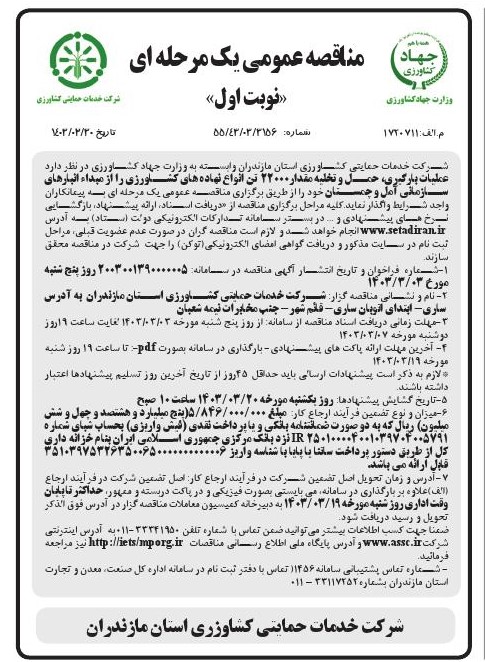 مناقصه عمومی یک مرحله ای
«نوبت اول»
همه با هم
جهاد
کشاورزی
وزارت جهاد کشاورزی
شرکت خدمات حمایتی کشاورزی
م.الف: ۱۷۲۰۷۱۱
شماره: ۵۵/۴۳/۰۳/۳۱۵۶
تاریخ ۱۴۰۳/۰۲/۳۰
شـرکت خدمات حمایتی کشـاورزی استان مازندران وابسته به وزارت جهاد کشاورزی در نظر دارد
عملیات بارگیری، حمـل و تخلیه مقدار ۲۲۰۰۰ تن انواع نهاده‌های کشـاورزی را از مبداء انبارهای
سـازمانی آمل و چمسـتان خود را از طریق برگزاری مناقصـه عمومی یک مرحله ای بـه پیمانکاران
واجد شرایط واگذار نماید.کلیه مراحل برگزاری مناقصه از «دریافت اسـناد، ارائه پیشنهاد، بازگشـایی
نـرخ هـای پیشـنهادی و ... در بسـتر سـامانه تـدارکات الکترونیکی دولـت (سـتاد) بـه آدرس
www.setadiran.ir انجام خواهد شـد و لازم است مناقصه گران در صورت عدم عضویت قبلی، مراحل
ثبت نام در سایت مذکور و دریافت گواهی امضای الکترونیکی(توکن) را جهت شرکت در مناقصه محقق
سازند.
۱-شـماره فراخوان و تاریخ انتشـار آگهی مناقصه در سـامانه: ۲۰۰۳۰۰۱۳۹۰۰۰۰۰۵ روز پنج شنبه
مورخ ۱۴۰۳/۳/۰۳
۲- نام و نشـانی مناقصه گزار: شـرکت خدمات حمایتی کشـاورزی اسـتان مازندران به آدرس
ساری- ابتدای اتوبان ساری- قائم شهر - جنب مخابرات نیمه شعبان
۳-مهلت زمانی دریافت اسناد مناقصه از سامانه: از روز پنج شنبه مورخه ۱۴۰۳/۰۳/۰۳ لغایت ساعت ۱۹روز
دوشنبه مورخه ۱۴۰۳/۰۳/۰۷
۴- آخرین مهلت ارائه پاکت های پیشـنهادی- بارگذاری در سامانه بصورت pdf-: تا ساعت ۱۹ روز شنبه
مورخه ۱۴۰۳/۰۳/۱۹
*لازم به ذکر است پیشنهادات ارسالی باید حداقل ۴۵روز از تاریخ آخرین روز تسلیم پیشنهادها اعتبار
داشته باشند.
۵-تاریخ گشایش پیشنهادها: روز یکشنبه مورخه ۱۴۰۳/۰۳/۲۰ ساعت ۱۰ صبح
۶-میزان و نوع تضمین فرآیند ارجاع کار: مبلغ ۵/۸۴۶/۰۰۰/۰۰۰(پنج میلیارد و هشتصد و چهل و شش
میلیون) ریال که به دو صورت ضمانتنامه بانکی و یا پرداخت نقدی (فیش واریزی) بحساب شبای شماره
IR ۲۵۰۱۰۰۰۰۴۰۰۱۰۳۹۷۰۴۰۰۵۷۹۱ نزد بانک مرکزی جمهوری اسـلامی ایران بنام خزانه داری
کل از طریق دستور پرداخت ساتنا یا پایا با شناسه واریز
قابل ارائه می باشد.
۷-آدرس و زمان تحویل اصل تضمین شـرکت در فرآیند ارجاع کار: اصل تضمین شرکت در فرآیند ارجاع
(الف)علاوه بر بارگذاری در سامانه، می بایستی بصورت فیزیکی و در پاکت دربسته و ممهور، حداکثر تا پایان
وقت اداری روز شنبه مورخه ۱۴۰۳/۰۳/۱۹ به دبیرخانه کمیسیون معاملات مناقصه گزار در آدرس فوق الذکر
تحویل و رسید دریافت شود.
ضمنا جهت کسب اطلاعات بیشتر می‌توانید ضمن تماس با شماره تلفن ۳۳۳۴۱۹۵۰-۰۱۱ به آدرس اینترنتی
شرکت www.assc.ir و آدرس پایگاه ملی اطلاع رسـانی مناقصات http://iets/mporg.ir نیز مراجعه
فرمائید.
- شـماره تماس پشتیبانی سامانه ۱۴۵۶( تماس با دفتر ثبت نام در سامانه اداره کل صنعت، معدن و تجارت
استان مازندران بشماره ۳۳۱۱۷۲۵۲ - ۰۱۱
شرکت خدمات حمایتی کشاورزی استان مازندران